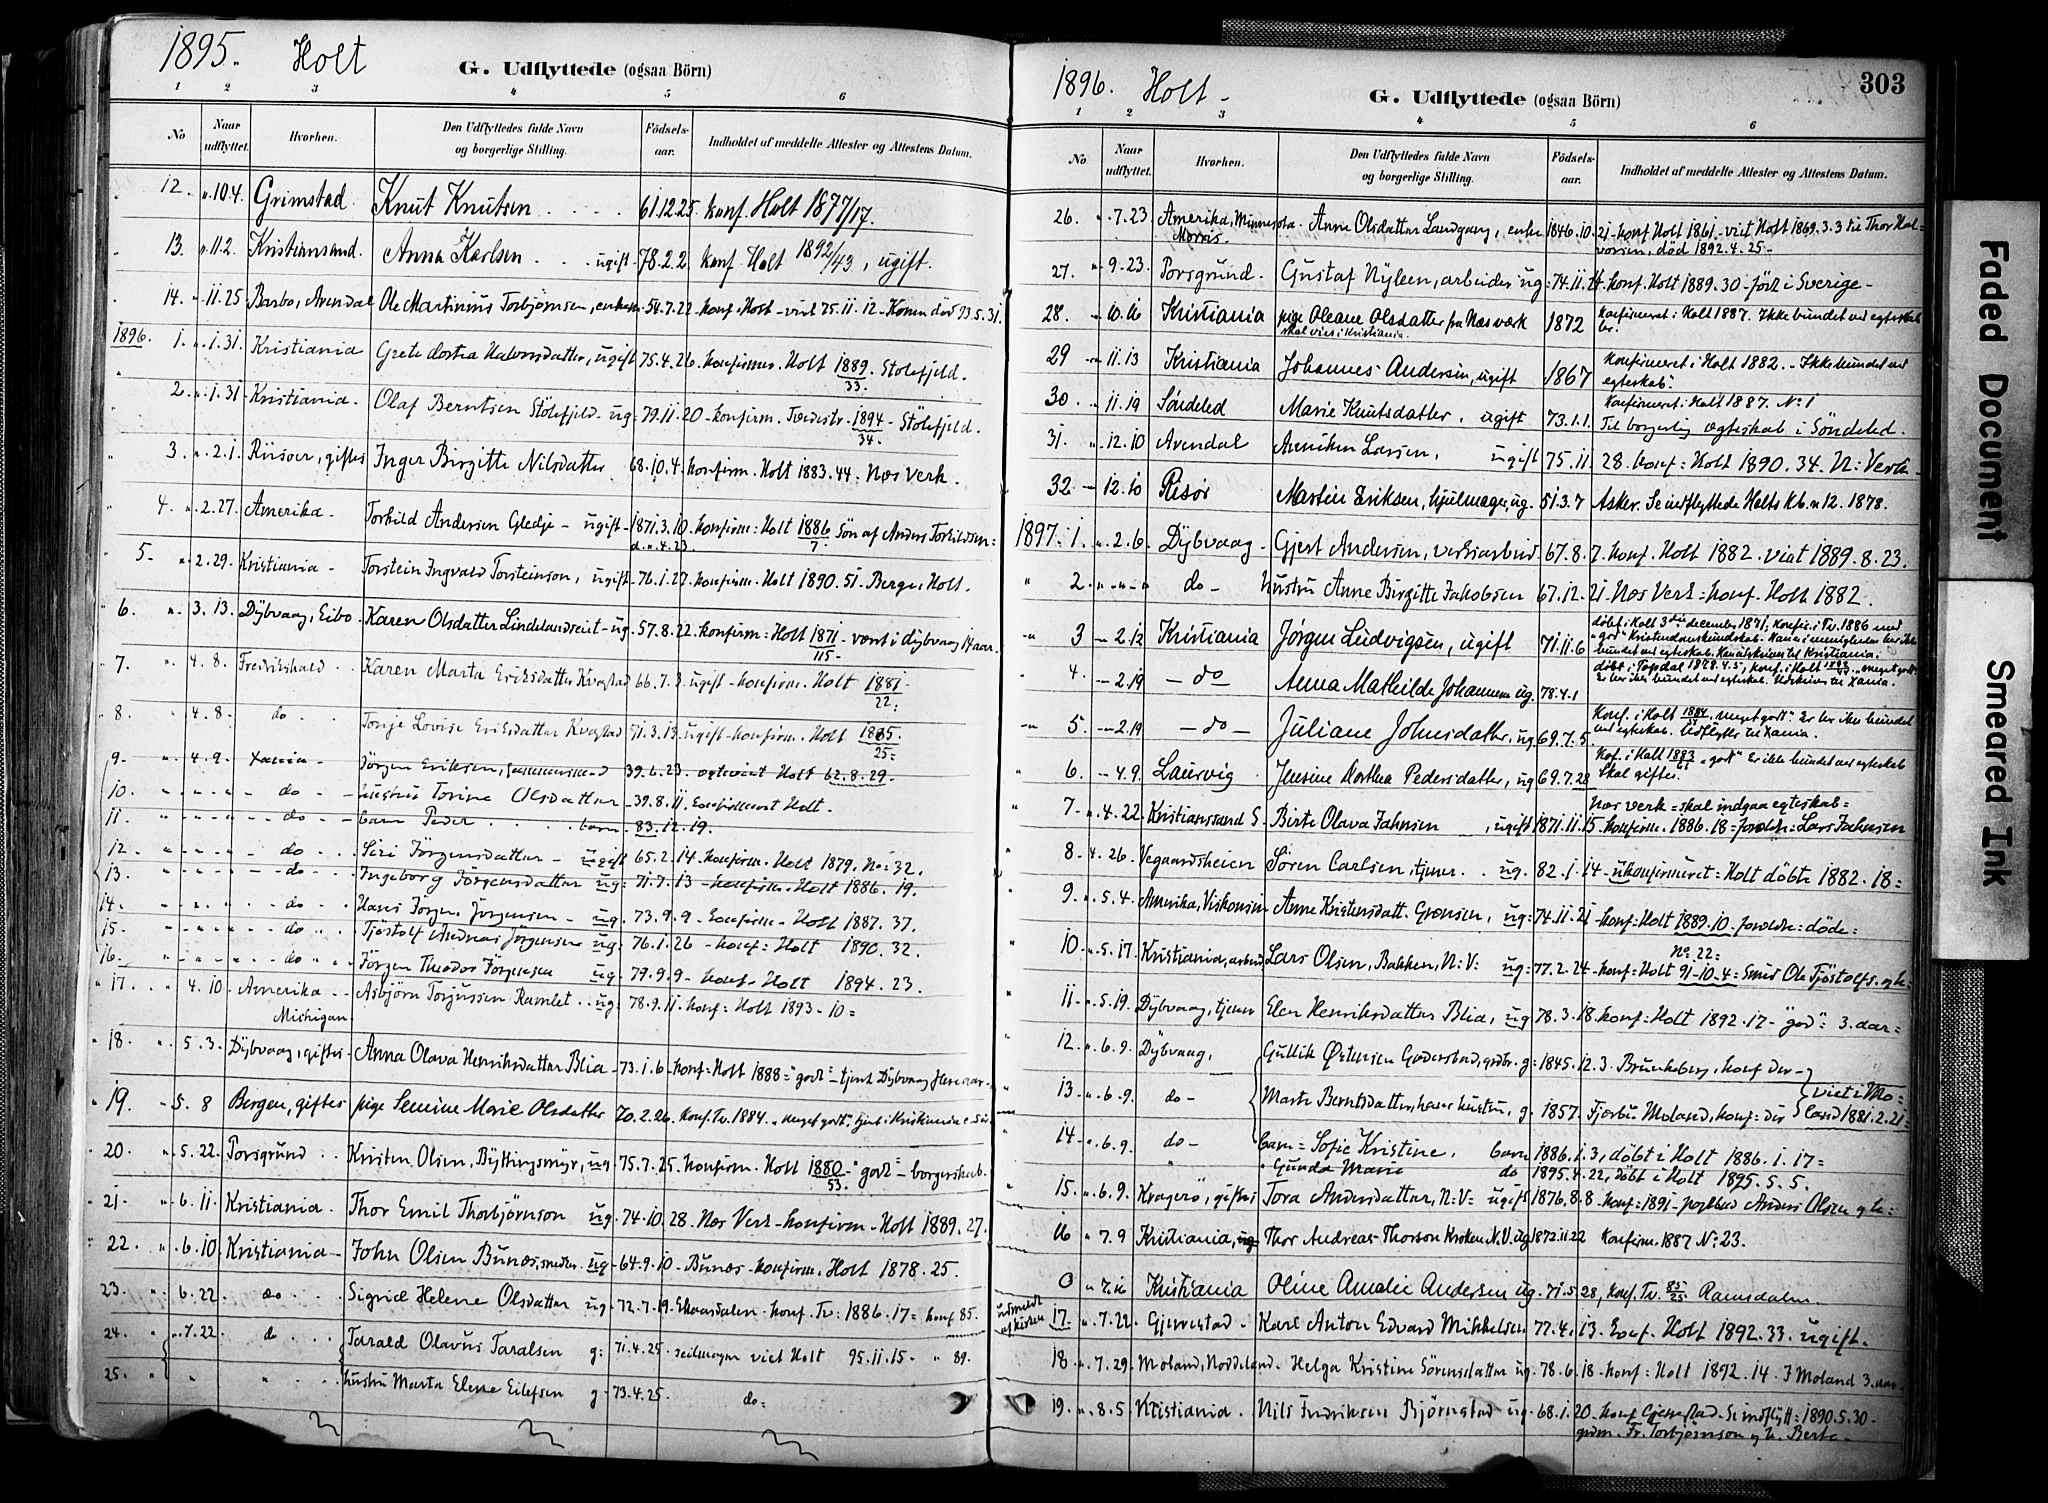 1895. Holt
G. Udflyttede (ogsaa Börn)
1 2 3 4 5 6
No Naar udflyttet. Hvorhen. Den Udflyttedes fulde Navn og borgerlige Stilling. Födsels-aar. Indholdet af meddelte Attester og Attestens Datum.
12. " 10.4. Grimstad. Knut Knutsen 61.12.25. konf. Holt 1877/17.
13. " 11.2. Kristiansand. Anna Karlsen ugift. 78.2.2. konf. Holt 1892/43, ugift.
14. " 11.25 Barbo, Arendal Ole Martinius Torbjørnsen, 54.7.22 konf. Holt - viet 75.11.12 - Konen död 93.5.31.
1896. 1. " 1.31. Kristiania Grete Halvorsdatter, ugift 75.4.26. konfirmer. Holt 1889. Stölefjeld.
33.
2. " 1.31 Kristiania. Olaf Berntsen Stölefjeld ug: 79.11.20 - konfirm. Tvedestr. 1894 - Stölefjeld.
34.
3. " 2.1. Riisoer, giftes Inger Birgitte Nilsdatter 68.10.4. konfirm. Holt 1883.44. Næs Verk.
4. " 2.27. Amerika - Torkild Andersen Gledje - ugift - 1871.3.10. konfirm: Holt 1886 Sön af Anders Torkildsen:
7.
5. " 2.29. Kristiania - Torstein Ingvald Torsteinson, ugift 76.1.27. konfirm: Holt 1890.51. Berge, Holt.
6. " 3.13. Dÿbvaag, Eibo Karen Olsdatter ug. 57.8.22. konfirm: Holt 1871 - i Dÿbvaag 14 aar.
115.
7. " 4.8. Fredrikshald Karen Marta Eriksdatter Kvastad 66.7.3 ugift - konfirm. Holt 1881
22:
8. " 4.8. do Tonje Lovise Eriksdatter Kvastad 71.3.13. ugift - konfirm. Holt 1885.
25:
9. " 4.9. Xania - Jörgen Eriksen, 39.6.23. Holt 62.8.29.
10. " " " do - hustru Torine Olsdatter - 39.8.11. konfirmeret Holt.
11. " " " do - barn Peder barn - 83.12.19.
12. " " " do Siri Jörgensdatter - ugift 65.2.14 - konfirm. Holt 1879. No: 32.
13. " " " do Ingeborg Jörgensdatter ug: 71.7.13 - konfirm. Holt 1886.19.
14. " " " do Hans Jörgen Jörgensen - ug. 73.9.9 - konfirm - Holt 1887.37.
15. " " " do Tjöstolf Andreas Jörgensen ug: 76.1.26 - konf: Holt 1890.32.
16. " " " do Jörgen Theodor Jörgensen ug: 79.9.9 - konf. Holt 1894.23.
17. " 4.10 Amerika Asbjörn Torjussen Ramlet ug: 78.9.11. konf: Holt 1893-10=
Michigan
18. " 5.3. Dÿbvaag, giftes Anna Olava Henriksdatter Blia 73.1.6 konf: Holt 1888 = "godt" - tjent Dÿbvaag
19. " 5.8 Bergen, giftes pige Semine Marie Olsdatter 70.2.26. konf. Tv. 1884. "meget godt".
20. " 5.22. Porsgrund Kristen Olsen, ug 75.7.25. konfirm. Holt 1880 - "godt" - borgerskab.
53.
21. " 6.11. Kristiania. Thor Emil Thorbjørnson ug 74.10.28. Næs Verk - konfirm - Holt 1889.27.
22. " 6.10 Kristiania - John Olsen Bunæs, ug - 64.9.10 - Bunæs - konfirm. Holt 1878.25.
23. " 6.22 do Sigrid Helene Olsdatter ug - 72.7.19. konf. Tv. 1886.17 =
24. " 7.22 do Tarald Olavus Taralsen g: 71.4.25. viet Holt 95.11.15 - " 89.
25. " " " hustru Marta Elene Eilefsen g 73.4.25. do:
1896. Holt - 303
G. Udflyttede (ogsaa Börn)
1 2 3 4 5 6
No Naar udflyttet. Hvorhen. Den Udflyttedes fulde Navn og borgerlige Stilling. Födsels-aar. Indholdet af meddelte Attester og Attestens Datum.
26. " 7.23. Amerika, Minnesota. Anne Olsdatter Landgang, enke 1846.10.21. konf. Holt 1861 - viet Holt 1869.3.3 til Thor Hal=
Morris. vorsen, död 1892.4.25 -
27. " 9.23. Porsgrund. Gustaf Nÿleen, arbeider ug: 74.11.14. konf. Holt 1889.30 - född i Sverige -
28. Kristiania pige Oleane Olsdatter fra Næs værk 1872 Konfirmeret i Holt 1887. Ikke bundet ved egteskab
skal vies i Kristiania.
29 11.13 Kristiania Johannes Andersen, ugift 1867 Konfirmeret i Holt 1882. - Ikke bundet ved
egteskab.
30. 11.19 Söndeled Marie Knutsdatter. ugift 73.1.1. Konfirmeret i Holt 1887. No 1
Til borgerlig ægteskab i Söndeled.
31. " 12.10 Arendal Anniken Larsen, ugift 75.11.28. konf: Holt 1890.34. N: Verk -
32 - 12.10 Risör Martin Eriksen, hjulmager, ug. 51.3.7 Asker. Se indflyttede Holts Kb. n 12. 1878.
1897. 1. " 2.6. Dÿbvaag - Gjert Andersen, 67.8.7. konf. Holt 1882. viet 1889.8.23.
2. " " " do - hustru Anne Birgitte Jakobsen 67.12.21 Næs Verk = konf. Holt 1882.
3 - 2.12 Kristiania Jörgen Ludvigsen, ugift 71.11.6 döbt i Holt 3die december 1871, Konfir. i Tv. 1886 med
"god" Kristendomskundskab. Kan i menigheden
bundet ved egteskab. til Kristiania.
4. - 2.19 - do - Anna Mathilde Johannesen ug. 78.4.1 döbt i 1878.4.5, Konf. i Holt 1893 "meget godt"
Er her ikke bundet ved egteskab. til Xania.
5. - 2.19 - do - Juliane Johnsdatter, ug 69.7.5. Konf. i Holt 1884 "meget godt" Er her ikke bundet
ved egteskab. Udflytter til Xania.
6. - 4.9. Laurvig Jensine Dorthea Pedersdatter, ug 69.7.28 Kof. i Holt 1883 "god" Er ikke bundet ved egteskab
Skal giftes.
7 - " 4.22. Kristianssand S. Birte Olava Jahnsen, ugift 1871.11.15. konfirm. 1886.18 = foreldre: Lars Jahnsen
Næs verk = skal indgaa egteskab =
8. 4.26. Vegaardsheien Sören Carlsen, tjener ug. 82.1.14 - ukonfirmeret = Holt döbt 1882.18 =
9. " 5.4. Amerika, Viskonsin Anne Kristensdatt. ug: 74.11.21 - konf: Holt 1889.10. foreldre: döde =
No. 22:
10 " 5.17. Kristiania, Lars Olsen, Bakken, N:V: ug: 77.2.24 - konf: Holt 91-10.4 = Smed Ole Tjöstolfs.
11. " 5.19. Dÿbvaag, tjener Elen Henriksdatter Blia, ug 78.3.18. konf: Holt 1892.17 - "god": 3. aar =
12. " 6.9. Dÿbvaag, Gullik Østensen g: 1845.12.3. konf. der -
13. " 6.9. do - Marte Berntsdatter, hans hustru, g: 1857. Moland, konf: der viet i Mo=
land 1881.2.21=
14 - " 6.9. do - barn = Sofie Kristine, barn 1886.1.3, döbt i Holt 1886.1.17 =
" Gunda Marie do 1895.4.22, döbt i Holt 1895.5.5.
15. " 6.9. Kragerö, giftes Tora Andersdatter, N:V = ugift 1876.8.8 - konf: 1891 - Anders Olsen
16 " 7.9 Kristiania, Thor Andreas Thorson Kroken N.V. ug 1872.11.22 Konfirm. 1887 No. 23.
0 " 7.16 Kristiania Oline Amalie Andersen ug. 71.5.28, Konf. Tv. 85/25 Ramsdalen.
udmeldt af kirken 17. " 7.22. Gjerrestad - Karl Anton Edvard Mikkelsen 77.4.13. konf. Holt 1892.33. ugift.
18 " 7.29. Moland, Helga Kristine Sörensdatter ug - 78.6.18. konf: Holt 1892.14. I Moland 3. aar.
19. " 8.5. Kristiania. Nils Fredriksen Björnstad ug. 68.1.20 - konf Gjerrestad. Se indflytt: 1890.5.30 -
Fr. Torbjørnson og h. Berte -
Faded Document
Smeared Ink